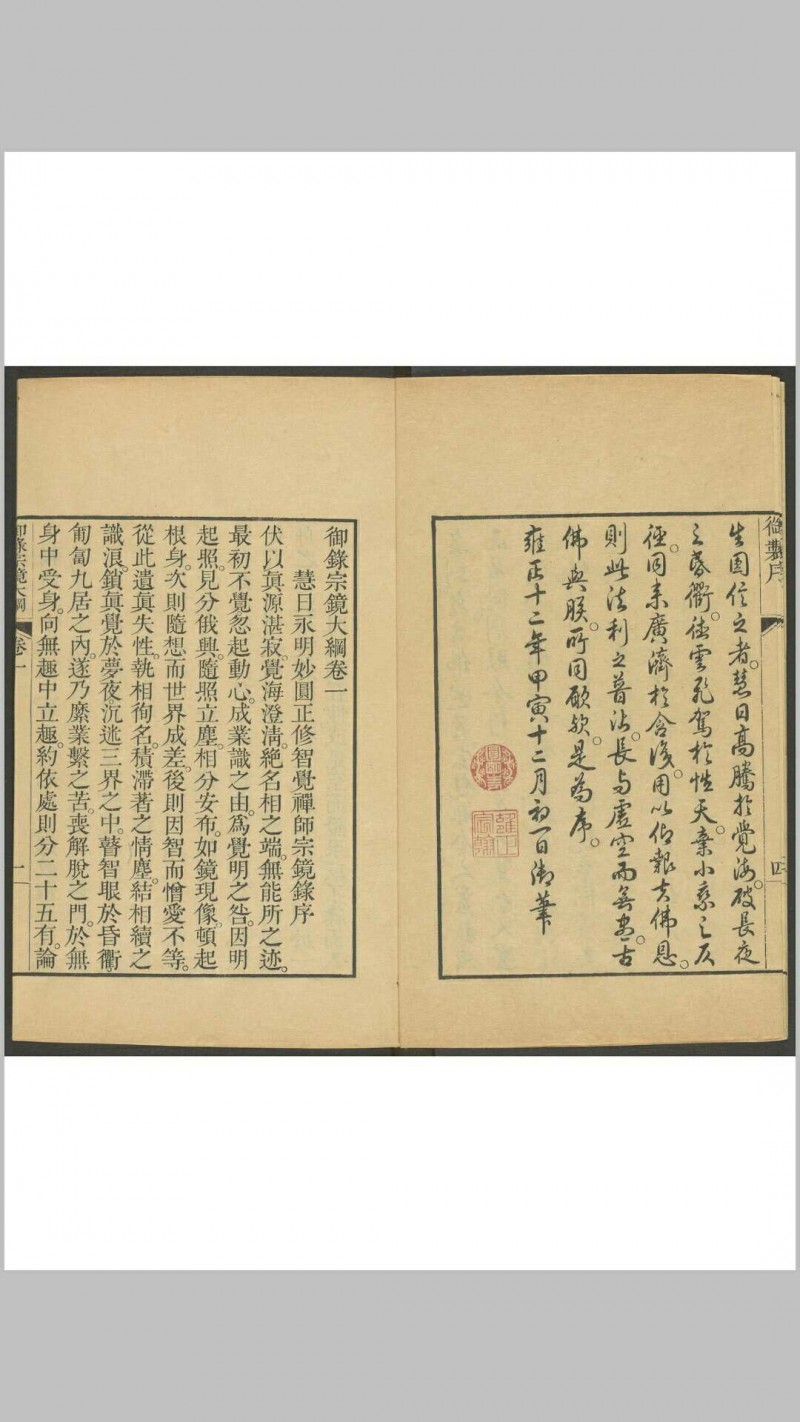 御製序
四
生圓信之者。慧日高騰於覺海。破長夜
之昏衢。慈雲飛駕於性天。棄小乘之仄
徑。同来廣濟於含識。用以仰報夫佛恩。
則此法利之普沾。長與虛空而無盡。古
佛與朕。所同願歟。是為序。
雍正十二年甲寅十二月初一日御筆
圓明
雍正宸翰
御錄宗鏡大綱卷一
慧日永明妙圓正修智覺禪師宗鏡錄序
伏以眞源湛寂。覺海澄淸。絶名相之端。無能所之迹。
最初不覺。忽起動心。成業識之由。爲覺明之咎。因明
起照。見分俄興。隨照立塵。相分安布。如鏡現像。頓起
根身。次則隨想而世界成差。後則因智而憎愛不等。
從此遺眞失性。執相徇名。積滯著之情塵。結相續之
識浪。鎖眞覺於夢夜。沉迷三界之中。瞽智眼於昏衢。
匍匐九居之內。遂乃縻業繫之苦。喪解脫之門。於無
身中受身。向無趣中立趣。約依處則分二十五有。論
御錄宗鏡大綱
卷一
一